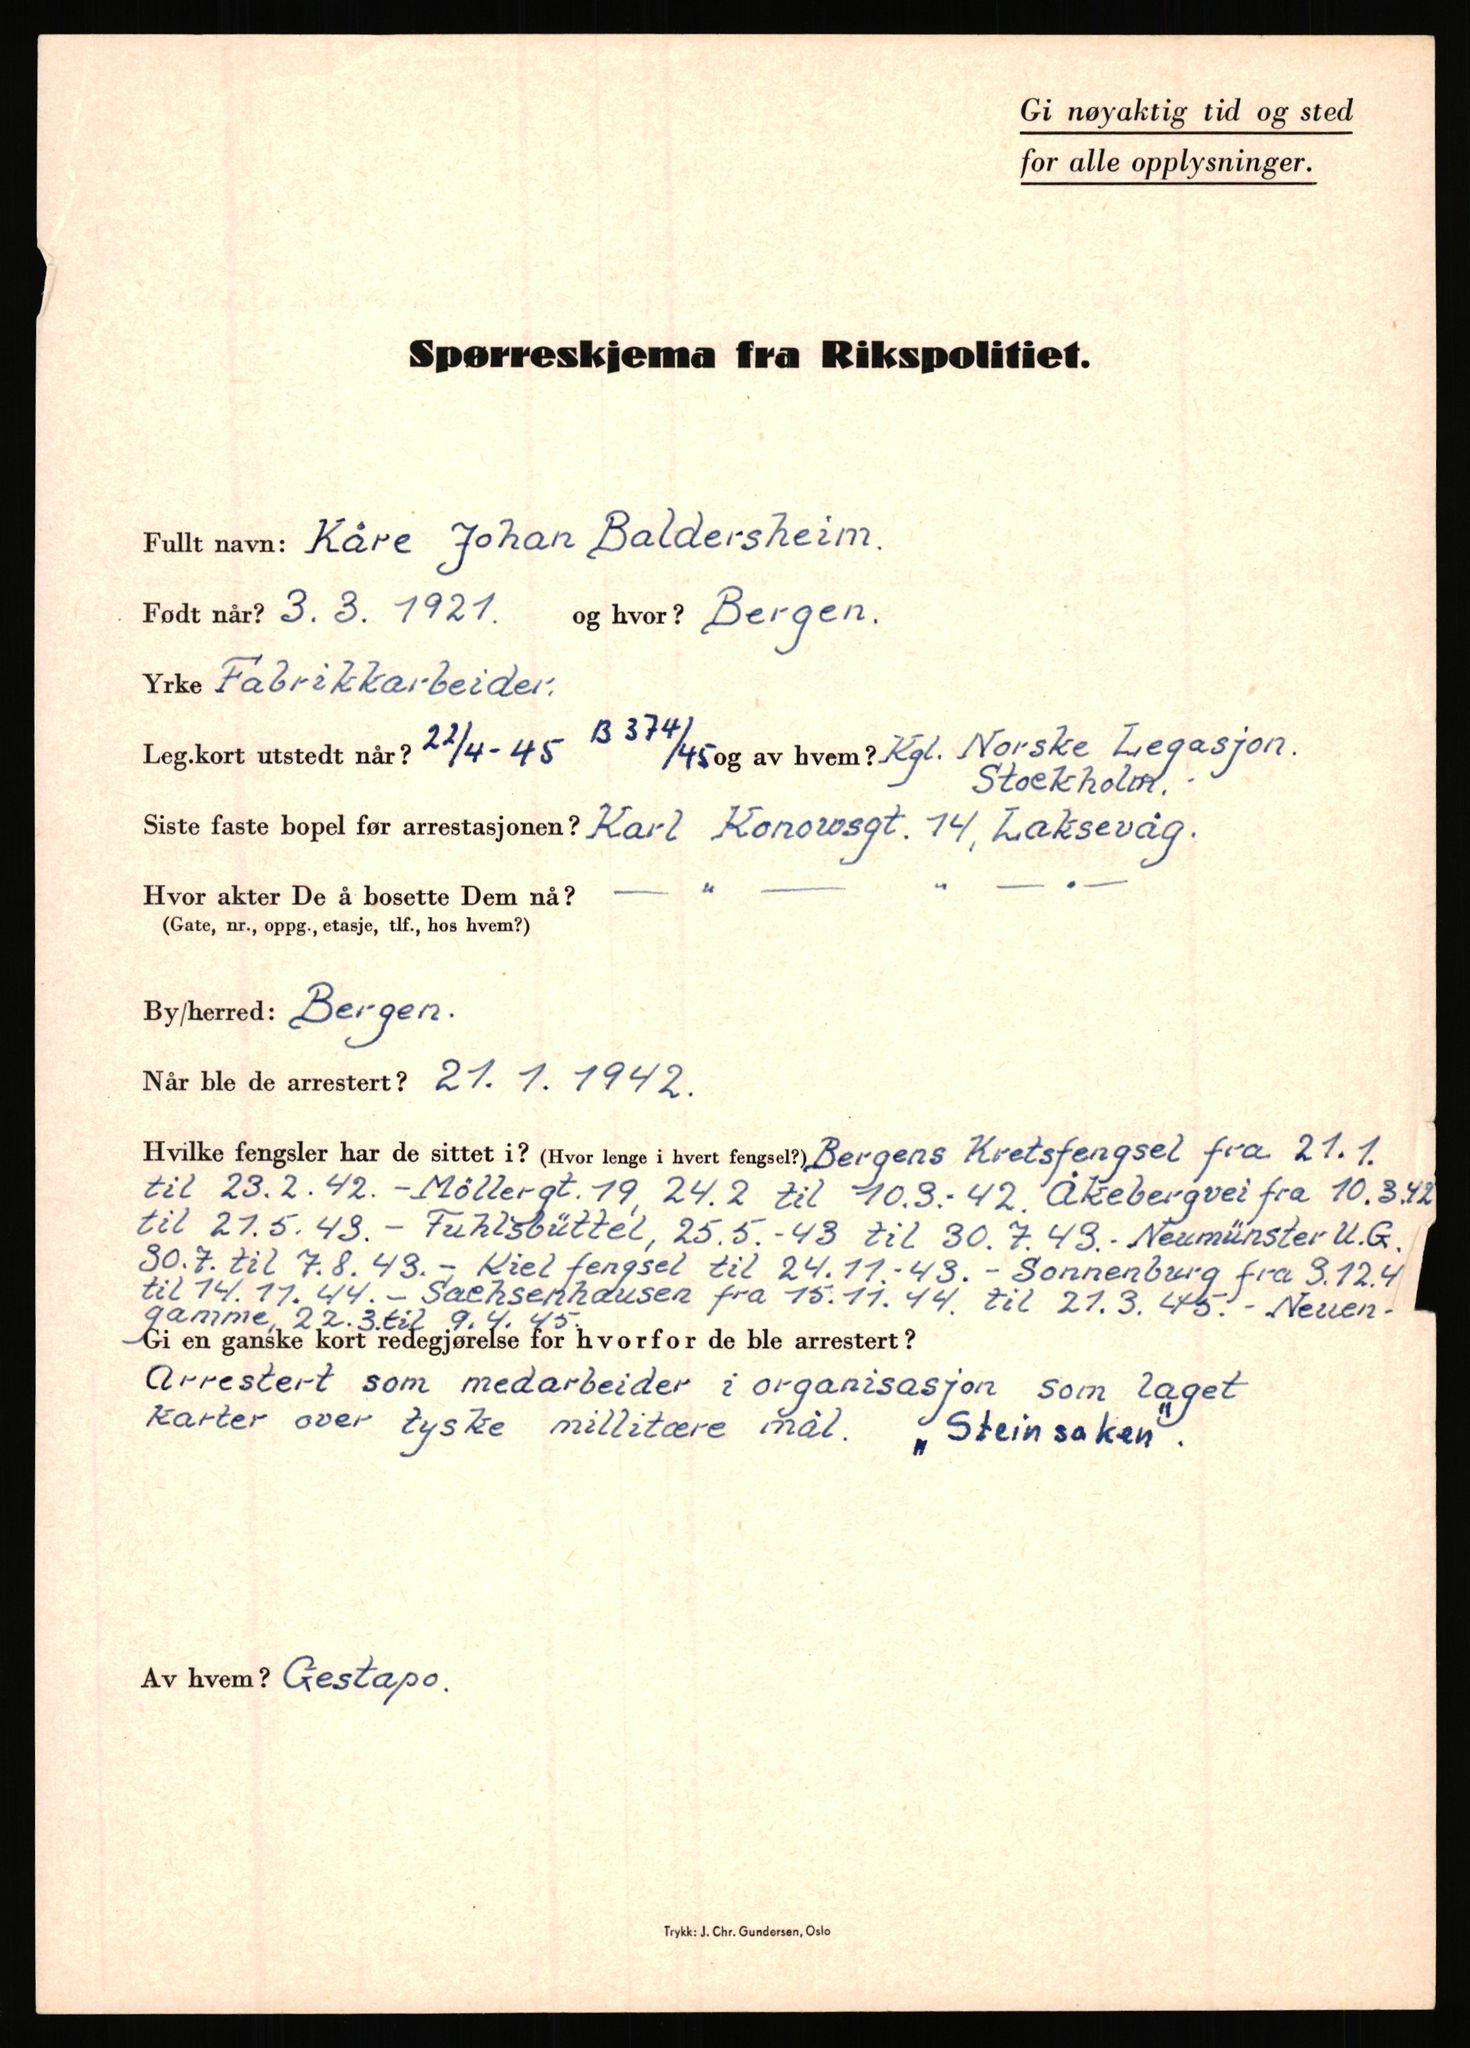 Gi nøyaktig tid og sted
for alle opplysninger.
Spørreskjema fra Rikspolitiet.
Fullt navn: Kåre Johan Baldersheim.
Født når? 3. 3. 1921. og hvor? Bergen.
Yrke Fabrikkarbeider.
Leg.kort utstedt når? 22/4-45 B 374/45 og av hvem? Kgl. Norske Legasjon.
Stockholm.
Siste faste bopel før arrestasjonen? Karl Konowsgt. 14, Laksevåg.
Hvor akter De å bosette Dem nå? — " — " — " —
(Gate, nr., oppg., etasje, tlf., hos hvem?)
By/herred: Bergen.
Når ble de arrestert? 21. 1. 1942.
Hvilke fengsler har de sittet i? (Hvor lenge i hvert fengsel?) Bergens Kretsfengsel fra 21.1.
til 23.2.42. - Möllergt. 19, 24.2 til 10.3.-42. Åkebergvei fra 10.3.42
til 21.5.43. - Fuhlsbüttel, 25.5.-43 til 30.7.43. - Neumünster U.G.
30.7. til 7.8.43. - Kiel fengsel til 24.11.-43. - Sonnenburg fra 3.12.4
til 14.11.44. - Sachsenhausen fra 15.11.44. til 21.3.45. - Neuen-
gamme, 22.3. til 9.4.45.
Gi en ganske kort redegjørelse for hvorfor de ble arrestert?
Arrestert som medarbeider i organisasjon som laget
karter over tyske millitære mål. „Steinsaken".
Av hvem? Gestapo.
Trykk: J. Chr. Gundersen, Oslo